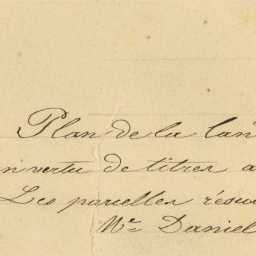 Plan de la Can
n vertu de titres a
Les parcelles résu
Mr Daniel